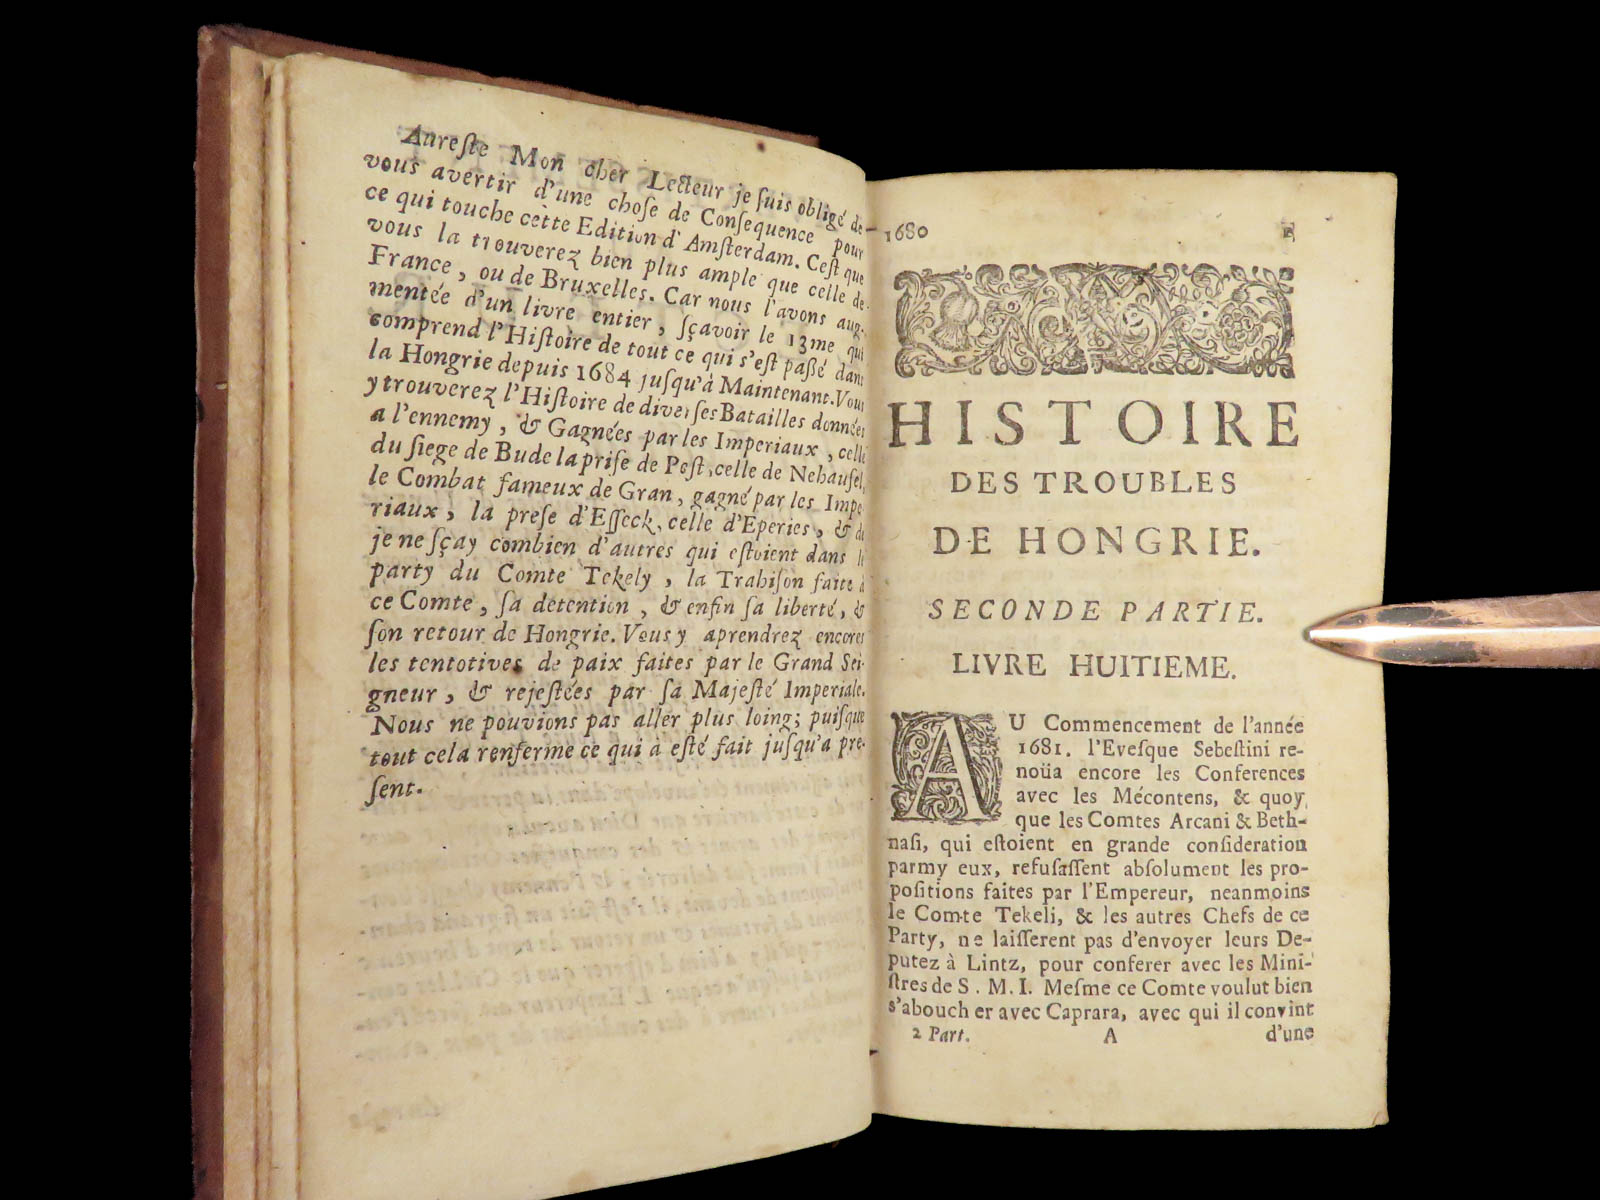 Aureſte Mon cher Lecteur je ſuis obligé de
vous avertir d'une choſe de Conſequence pour
ce qui touche cette Edition d'Amſterdam. Ceſt que
vous la trouverez bien plus ample que celle de
France, ou de Bruxelles. Car nous l'avons aug-
mentée d'un livre entier, ſçavoir le 13me qui
comprend l'Hiſtoire de tout ce qui s'eſt paßé dans
la Hongrie depuis 1684 juſqu'à Maintenant. Vous
y trouverez l'Hiſtoire de diverſes Batailles données
a l'ennemy, & Gagnées par les Imperiaux, celle
du ſiege de Bude la priſe de Peſt, celle de Nehauſel,
le Combat fameux de Gran, gagné par les Impe-
riaux, la preſe d'Eſſeck, celle d'Eperies, & de
je ne ſçay combien d'autres qui eſtoient dans le
party du Comte Tekely, la Trahiſon faite à
ce Comte, ſa detention, & enfin ſa liberté, &
ſon retour de Hongrie. Vous y aprendrez encores
les tentotives de paix faites par le Grand Sei-
gneur, & rejeſtées par ſa Majeſté Imperiale.
Nous ne pouvions pas aller plus loing; puiſque
tout cela renferme ce qui à eſté fait juſqu'a pre-
ſent.
1680
HISTOIRE
DES TROUBLES
DE HONGRIE.
SECONDE PARTIE.
LIVRE HUITIEME.
AU Commencement de l'année
1681. l'Eveſque Sebeſtini re-
noüa encore les Conferences
avec les Mécontens, & quoy
que les Comtes Arcani & Beth-
naſi, qui eſtoient en grande conſideration
parmy eux, refuſaſſent abſolument les pro-
poſitions faites par l'Empereur, neanmoins
le Comte Tekeli, & les autres Chefs de ce
Party, ne laiſſerent pas d'envoyer leurs De-
putez à Lintz, pour conferer avec les Mini-
ſtres de S. M. I. Meſme ce Comte voulut bien
s'abouch er avec Caprara, avec qui il convint
2 Part. A d'une